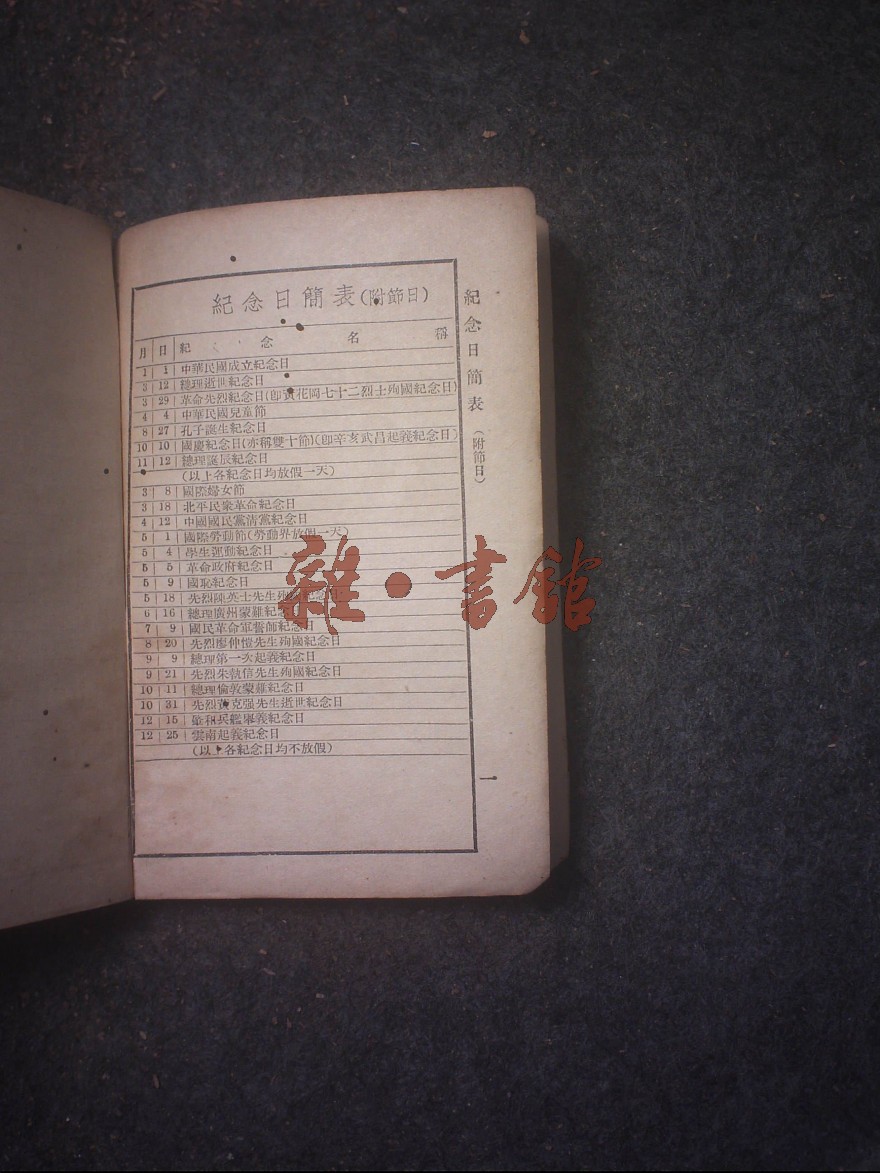 紀念日簡表(附節日)
月 日 紀念名稱
1 1 中華民國成立紀念日
3 12 總理逝世紀念日
3 29 革命先烈紀念日(卽黃花岡七十二烈士殉國紀念日)
4 4 中華民國兒童節
8 27 孔子誕生紀念日
10 10 國慶紀念日(亦稱雙十節)(卽辛亥武昌起義紀念日)
11 12 總理誕辰紀念日
(以上各紀念日均放假一天)
3 8 國際婦女節
3 18 北平民衆革命紀念日
4 12 中國國民黨清黨紀念日
5 1 國際勞動節(勞動界放假一天)
5 4 學生運動紀念日
5 5 革命政府紀念日
5 9 國恥紀念日
5 18 先烈陳英士先生殉國紀念日
6 16 總理廣州蒙難紀念日
7 9 國民革命軍誓師紀念日
8 20 先烈廖仲愷先生殉國紀念日
9 9 總理第一次起義紀念日
9 21 先烈朱執信先生殉國紀念日
10 11 總理倫敦蒙難紀念日
10 31 先烈黃克强先生逝世紀念日
12 15 肇和兵艦舉義紀念日
12 25 雲南起義紀念日
(以上各紀念日均不放假)
紀念日簡表(附節日)
一
雜·書館